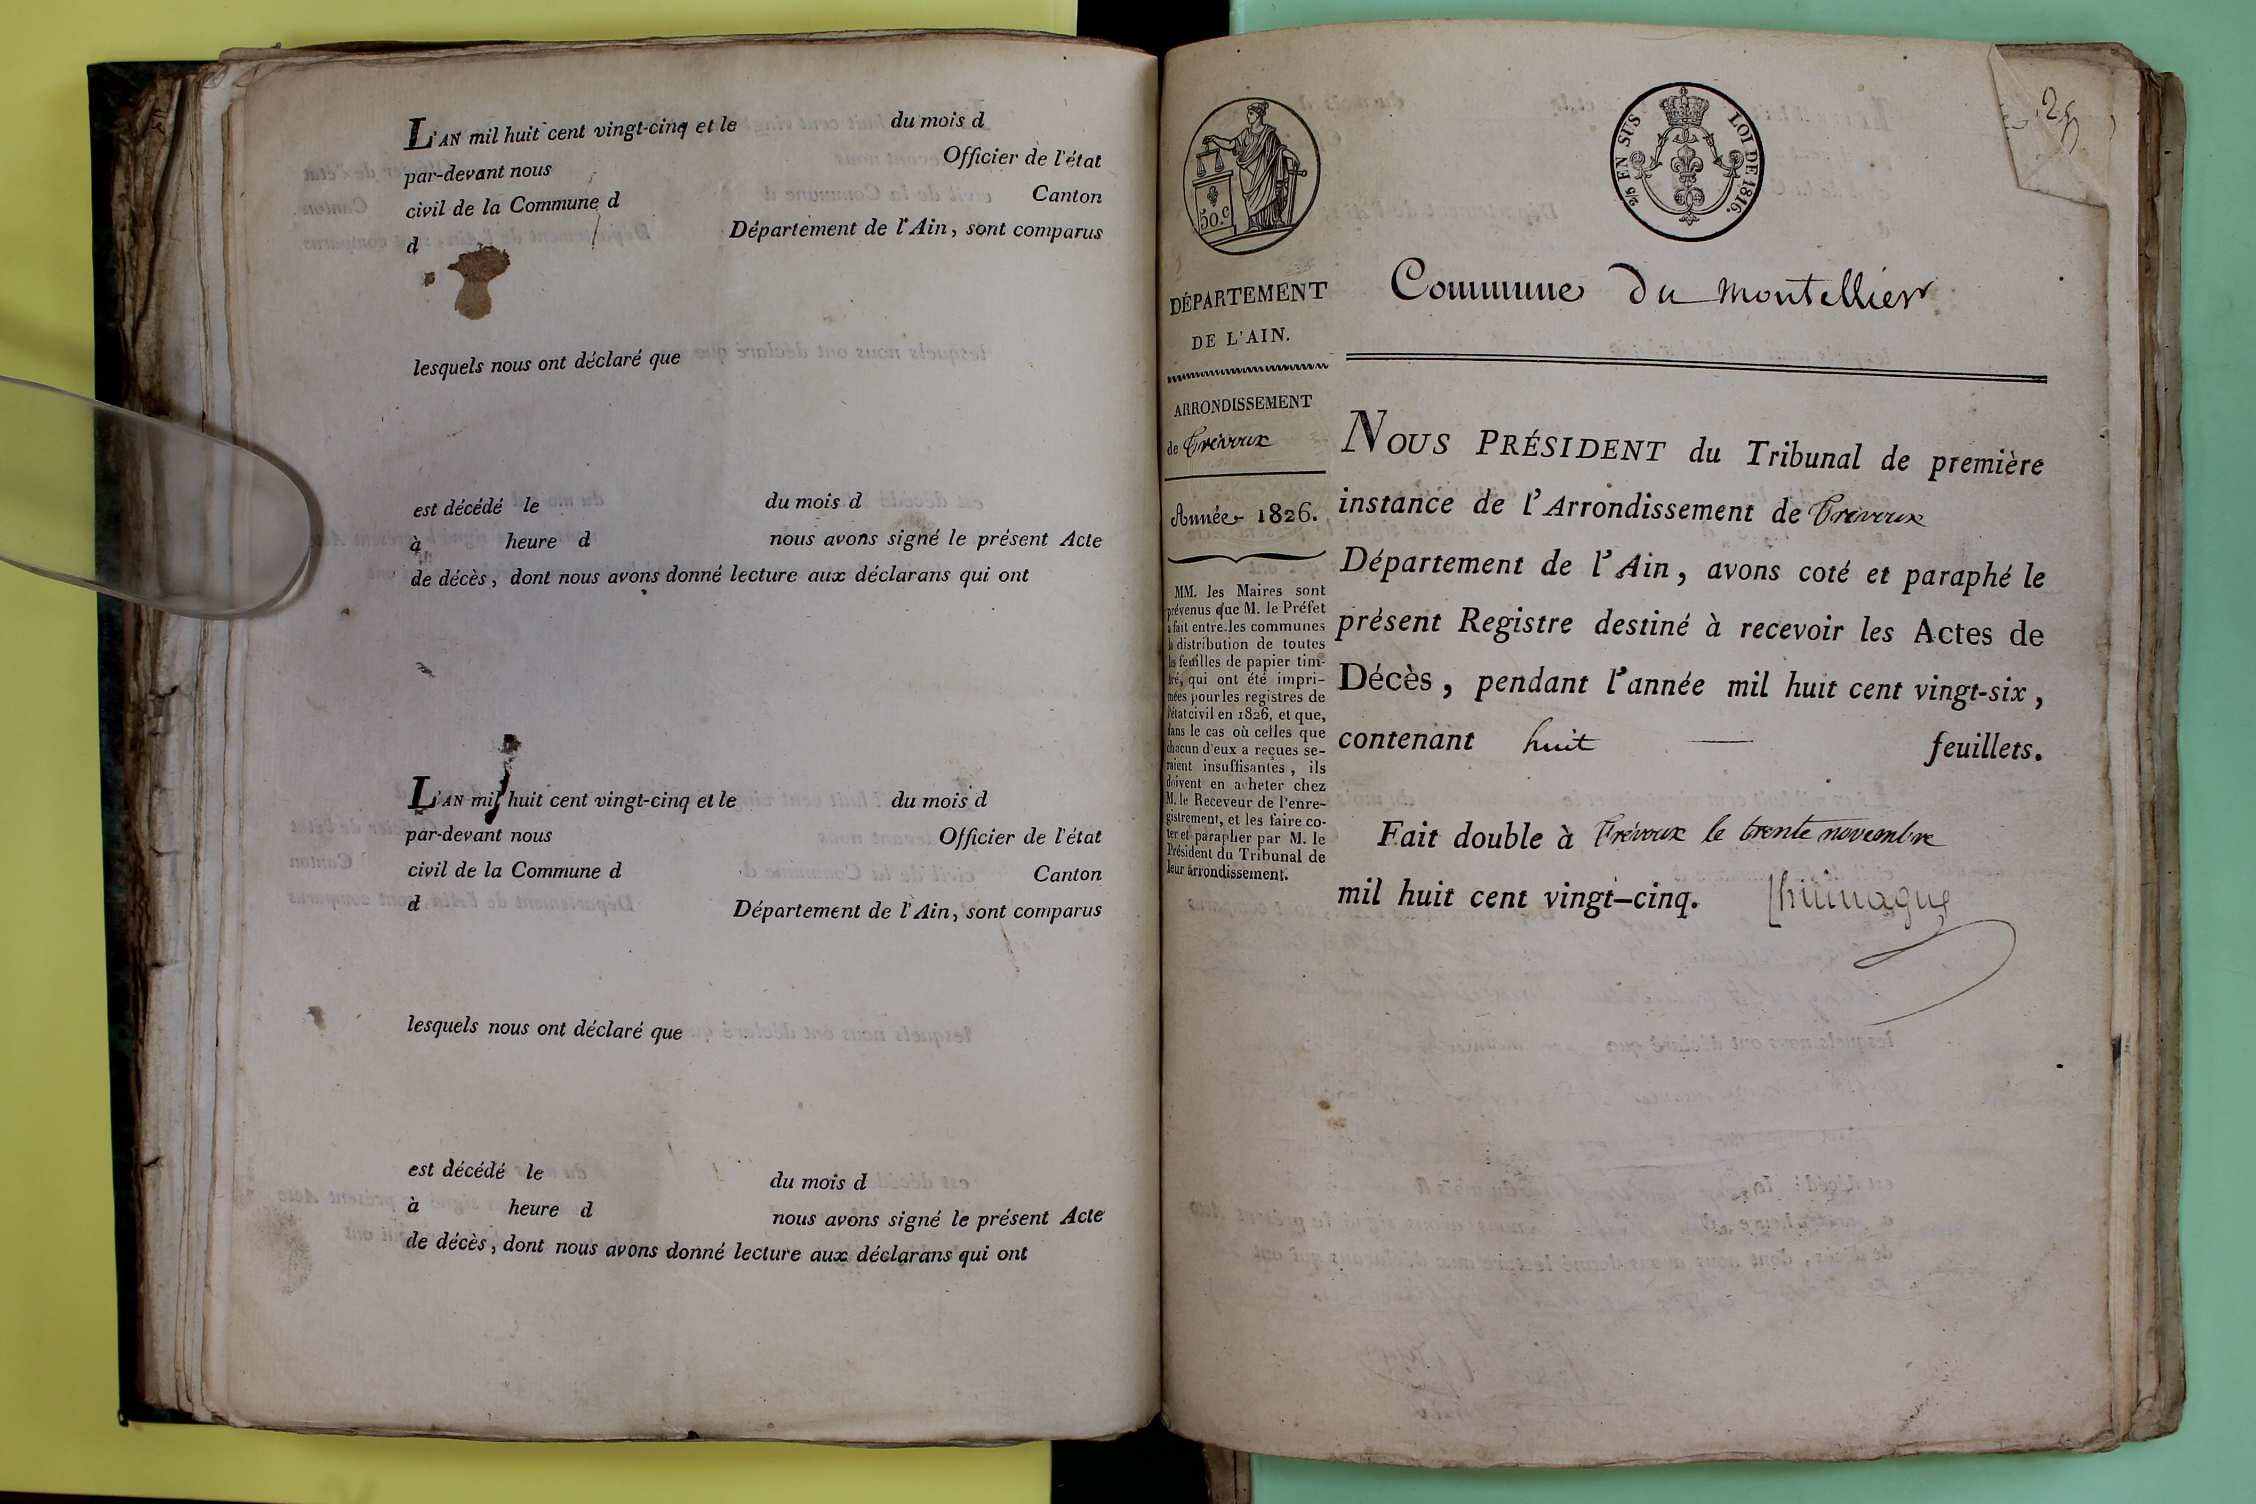 L'AN mil huit cent vingt-cinq et le du mois d
par-devant nous Officier de l'état
civil de la Commune d Canton
d Département de l'Ain, sont comparus
lesquels nous ont déclaré que
est décédé le du mois d
à heure d nous avons signé le présent Acte
de décès, dont nous avons donné lecture aux déclarans qui ont
L'AN mil huit cent vingt-cinq et le du mois d
par-devant nous Officier de l'état
civil de la Commune d Canton
d Département de l'Ain, sont comparus
lesquels nous ont déclaré que
est décédé le du mois d
à heure d nous avons signé le présent Acte
de décès, dont nous avons donné lecture aux déclarans qui ont
50.c
2/5 EN SUS LOI DE 1816.
DÉPARTEMENT
DE L'AIN.
ARRONDISSEMENT
de Trévoux
Année 1826.
MM. les Maires sont
prévenus que M. le Préfet
a fait entre les communes
la distribution de toutes
les feuilles de papier tim-
bré, qui ont été impri-
mées pour les registres de
l'état civil en 1826, et que,
dans le cas où celles que
chacun d'eux a reçues se-
raient insuffisantes, ils
doivent en acheter chez
M. le Receveur de l'enre-
gistrement, et les faire co-
ter et parapher par M. le
Président du Tribunal de
leur arrondissement.
Commune du Montellier
NOUS PRÉSIDENT du Tribunal de première
instance de l'Arrondissement de Trévoux
Département de l'Ain, avons coté et paraphé le
présent Registre destiné à recevoir les Actes de
Décès, pendant l'année mil huit cent vingt-six,
contenant huit — feuillets.
Fait double à Trévoux le trente novembre
mil huit cent vingt-cinq.